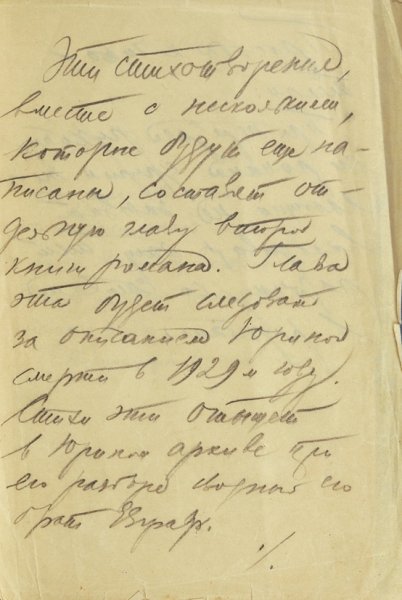 Эти стихотворения,
вместе с несколькими,
которые будут еще на-
писаны, составят от-
дельную главу второй
книги романа. Глава
эта будет следовать
за описанием Юриной
смерти в 1929 м году.
Стихи эти отыщет
в Юрином архиве при
его разборе сводный его
брат Евграф.
./.